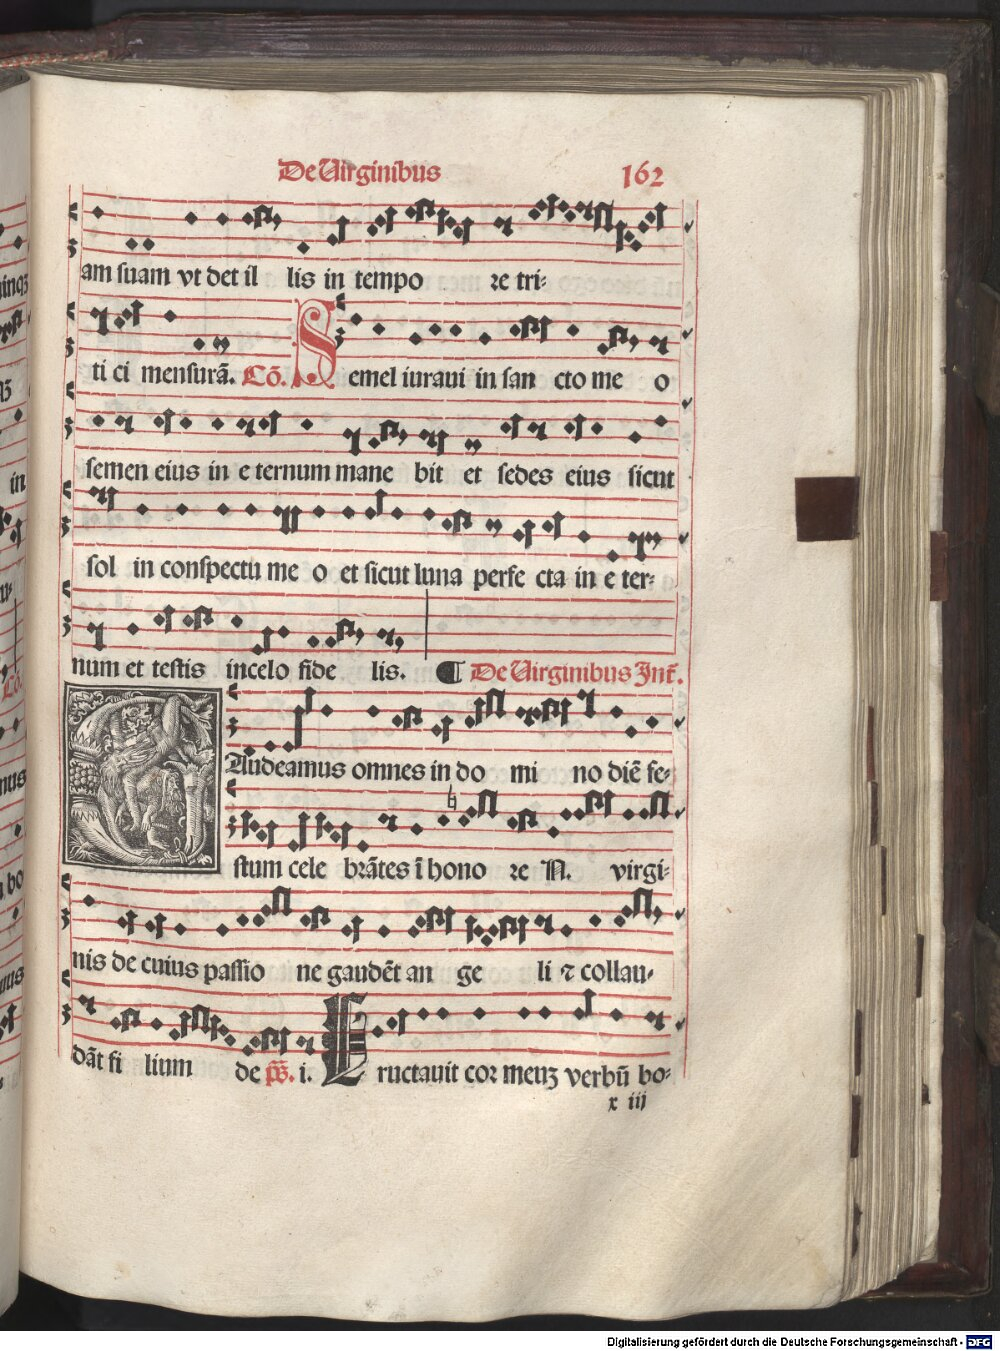 De Uirginibus 162
am suam vt det il lis in tempo re tri-
ti ci mensurā. Cō. Semel iuraui in san cto me o
semen eius in e ternum mane bit et sedes eius sicut
sol in conspectu me o et sicut luna perfe cta in e ter-
num et testis in celo fide lis. ¶ De Uirginibus Int̄.
GAudeamus omnes in do mi no diē fe-
stum cele brātes ī hono re N. virgi-
nis de cuius passio ne gaudēt an ge li ⁊ collau-
dāt fi lium de p̄s. i. Eructauit cor meuꝫ verbū bo-
x iij
Digitalisierung gefördert durch die Deutsche Forschungsgemeinschaft - DFG